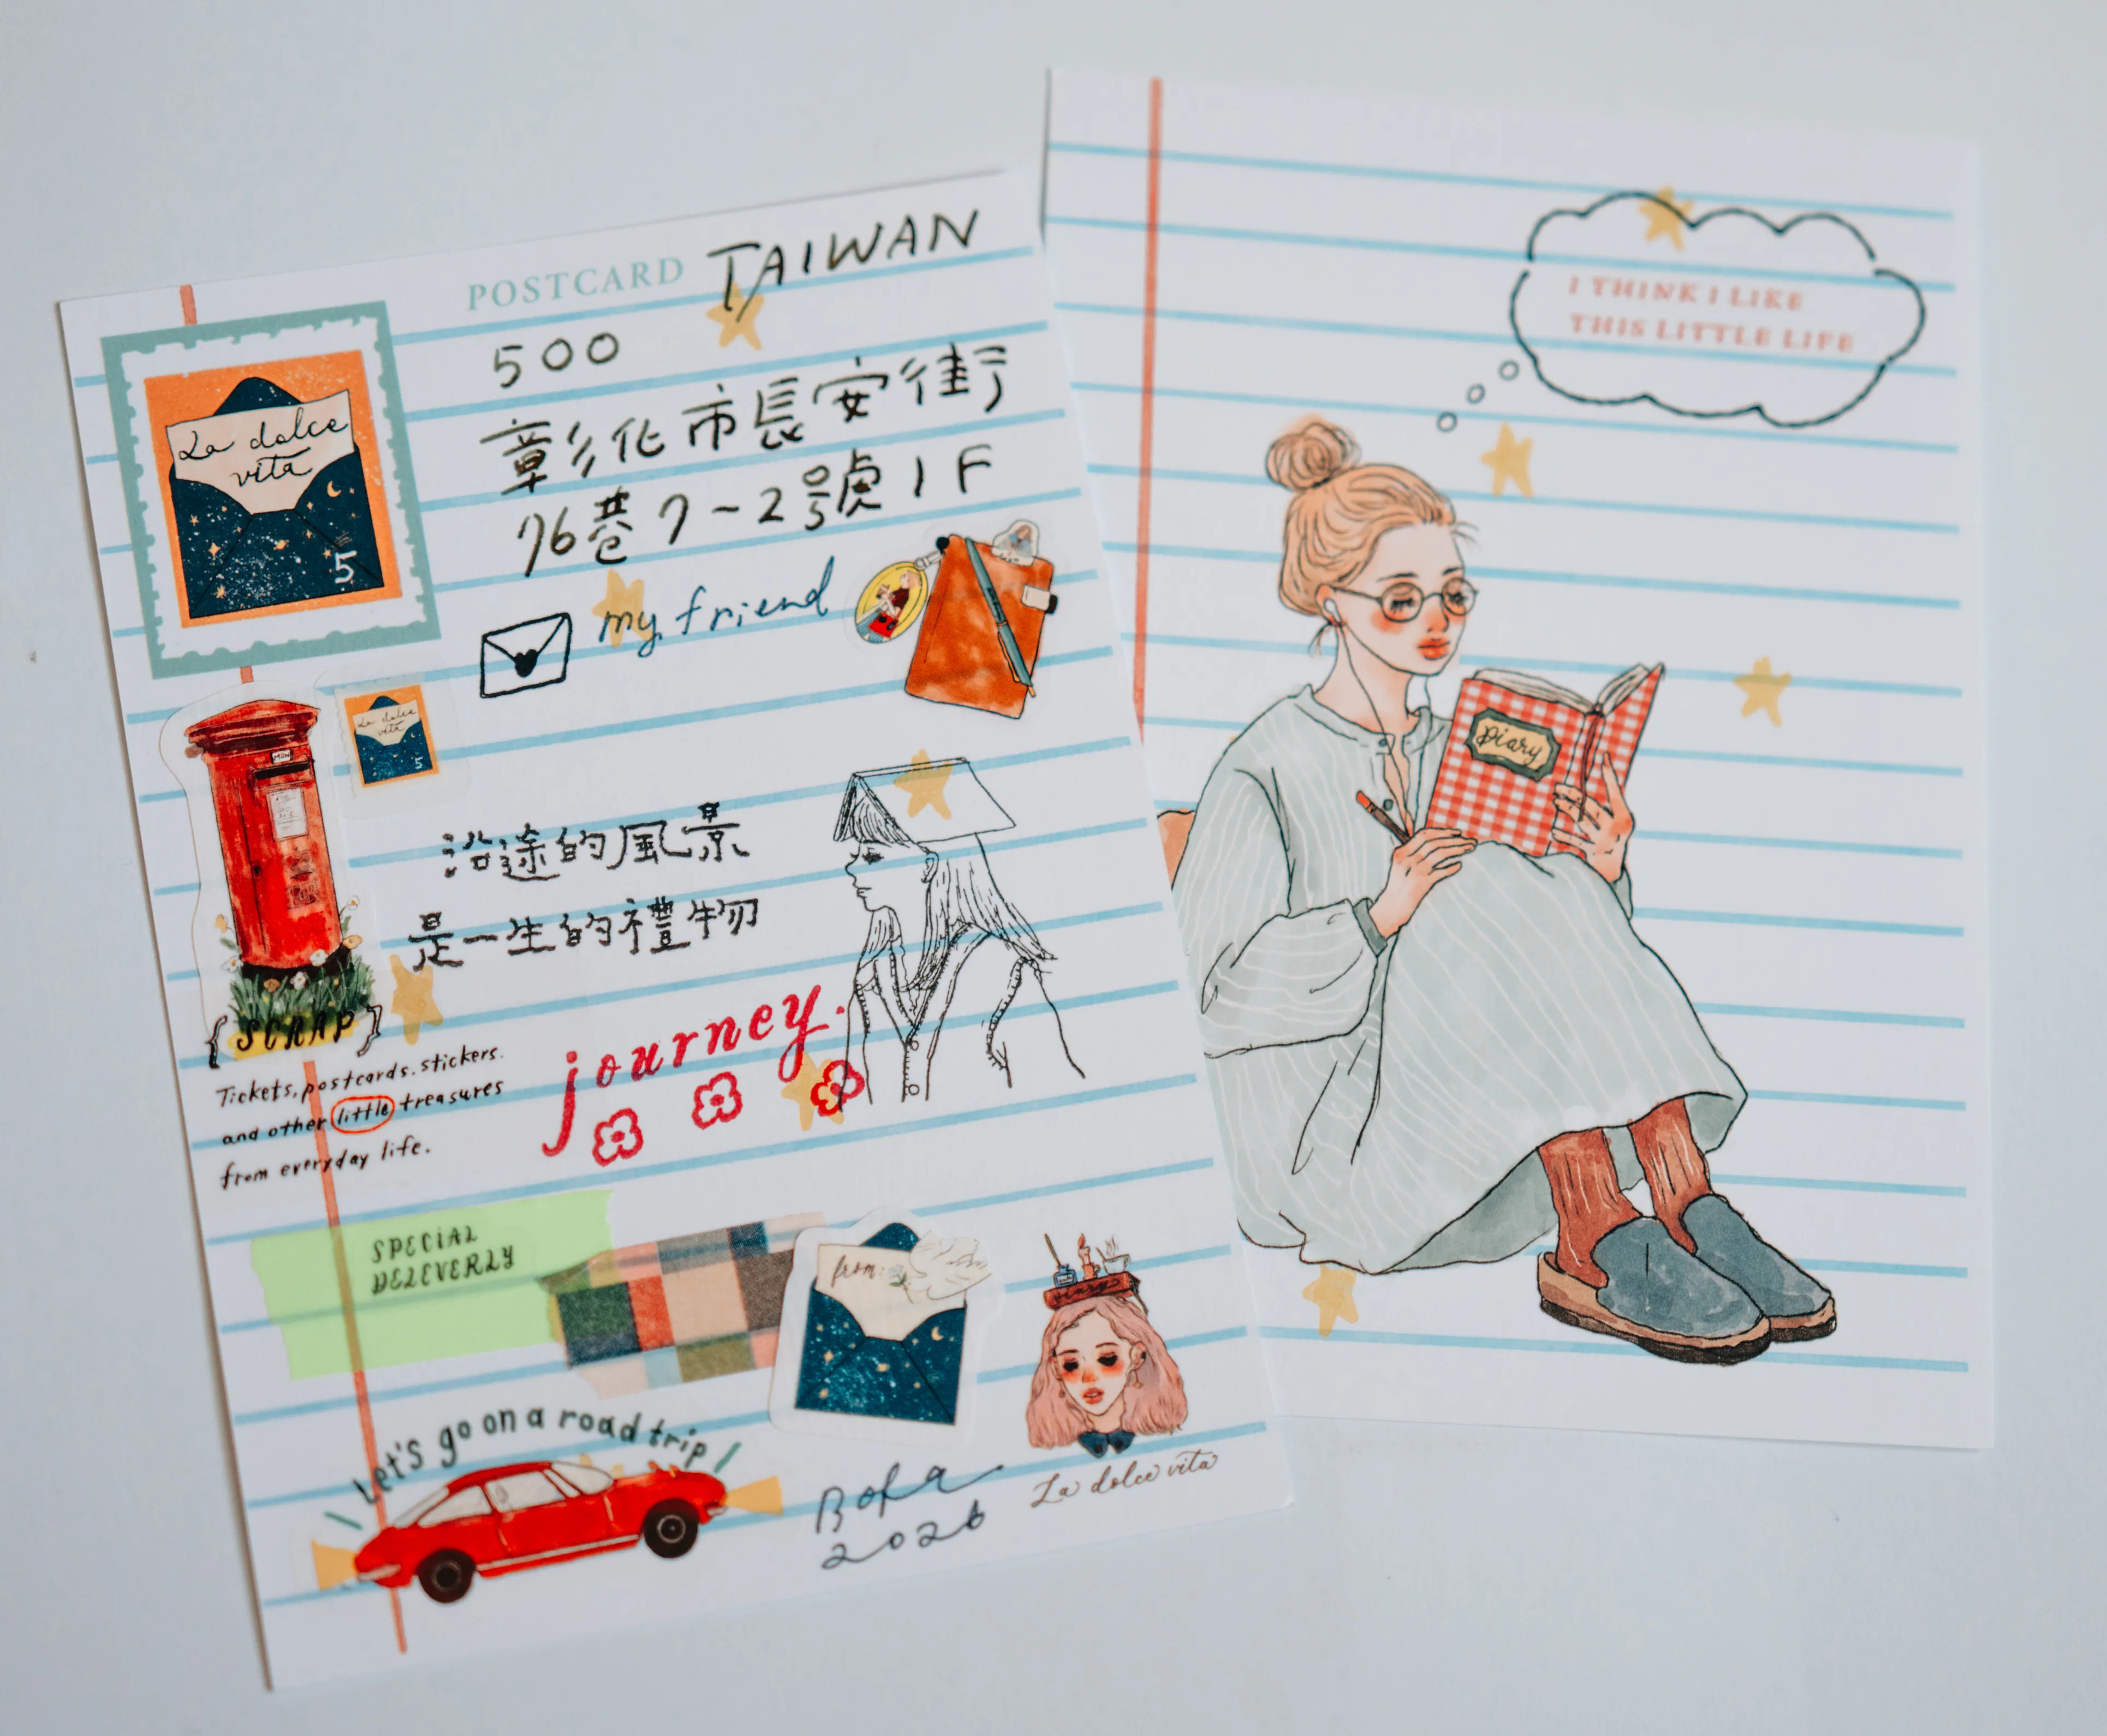 POSTCARD TAIWAN
500
彰化市長安街
76巷7~2號1F
La dolce
vita
5
my friend
La dolce
vita
5
沿途的風景
是一生的禮物
{SCRAP}
Tickets, postcards. stickers.
and other little treasures
from everyday life.
journey.
SPECIAL
DELEVERLY
from:
Let's go on a road trip
La dolce vita
2026
I THINK I LIKE
THIS LITTLE LIFE
Diary